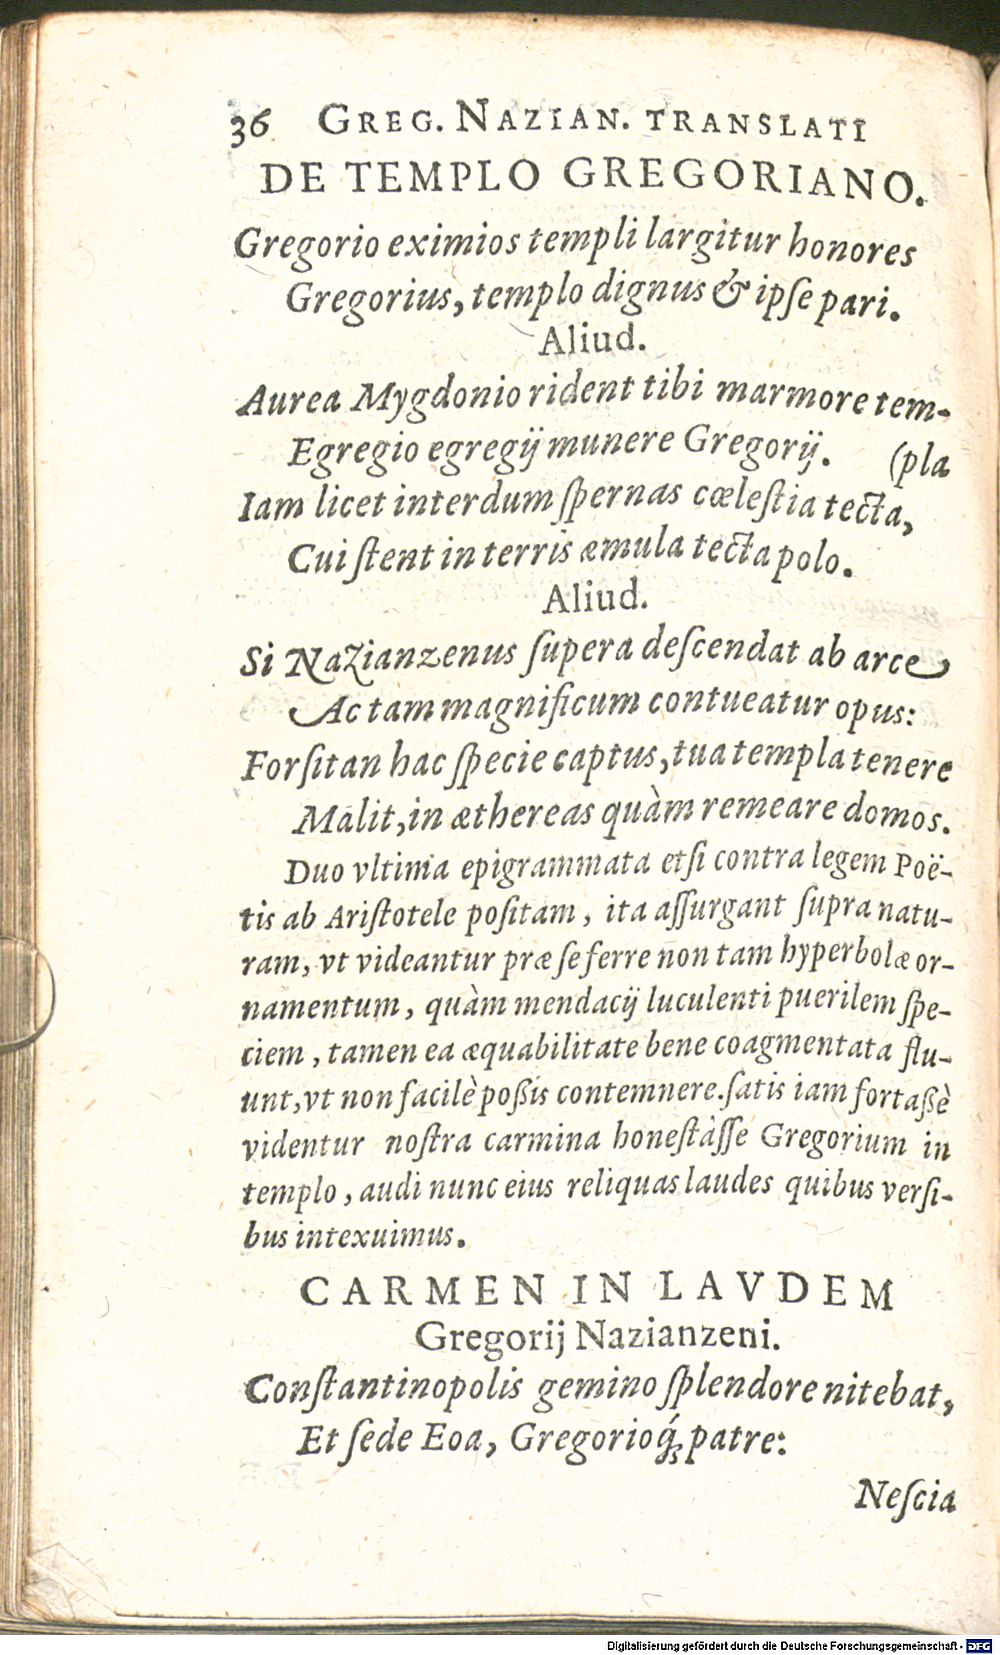 36 GREG. NAZIAN. TRANSLATI
DE TEMPLO GREGORIANO.
Gregorio eximios templi largitur honores
Gregorius, templo dignus & ipſe pari.
Aliud.
Aurea Mygdonio rident tibi marmore tem-
Egregio egregij munere Gregorij. (pla
Iam licet interdum ſpernas cœleſtia tecta,
Cui ſtent in terris æmula tecta polo.
Aliud.
Si Nazianzenus ſupera deſcendat ab arce
Ac tam magnificum contueatur opus:
Forſitan hac ſpecie captus, tua templa tenere
Malit, in æthereas quàm remeare domos.
Duo vltima epigrammata etſi contra legem Poë-
tis ab Ariſtotele poſitam, ita aſſurgant ſupra natu-
ram, vt videantur præ ſe ferre non tam hyperbolæ or-
namentum, quàm mendacij luculenti puerilem ſpe-
ciem, tamen ea æquabilitate bene coagmentata flu-
unt, vt non facilè poßis contemnere. ſatis iam fortaßè
videntur noſtra carmina honeſtàſſe Gregorium in
templo, audi nunc eius reliquas laudes quibus verſi-
bus intexuimus.
CARMEN IN LAVDEM
Gregorij Nazianzeni.
Conſtantinopolis gemino ſplendore nitebat,
Et ſede Eoa, Gregorioq́; patre:
Neſcia
Digitalisierung gefördert durch die Deutsche Forschungsgemeinschaft - DFG